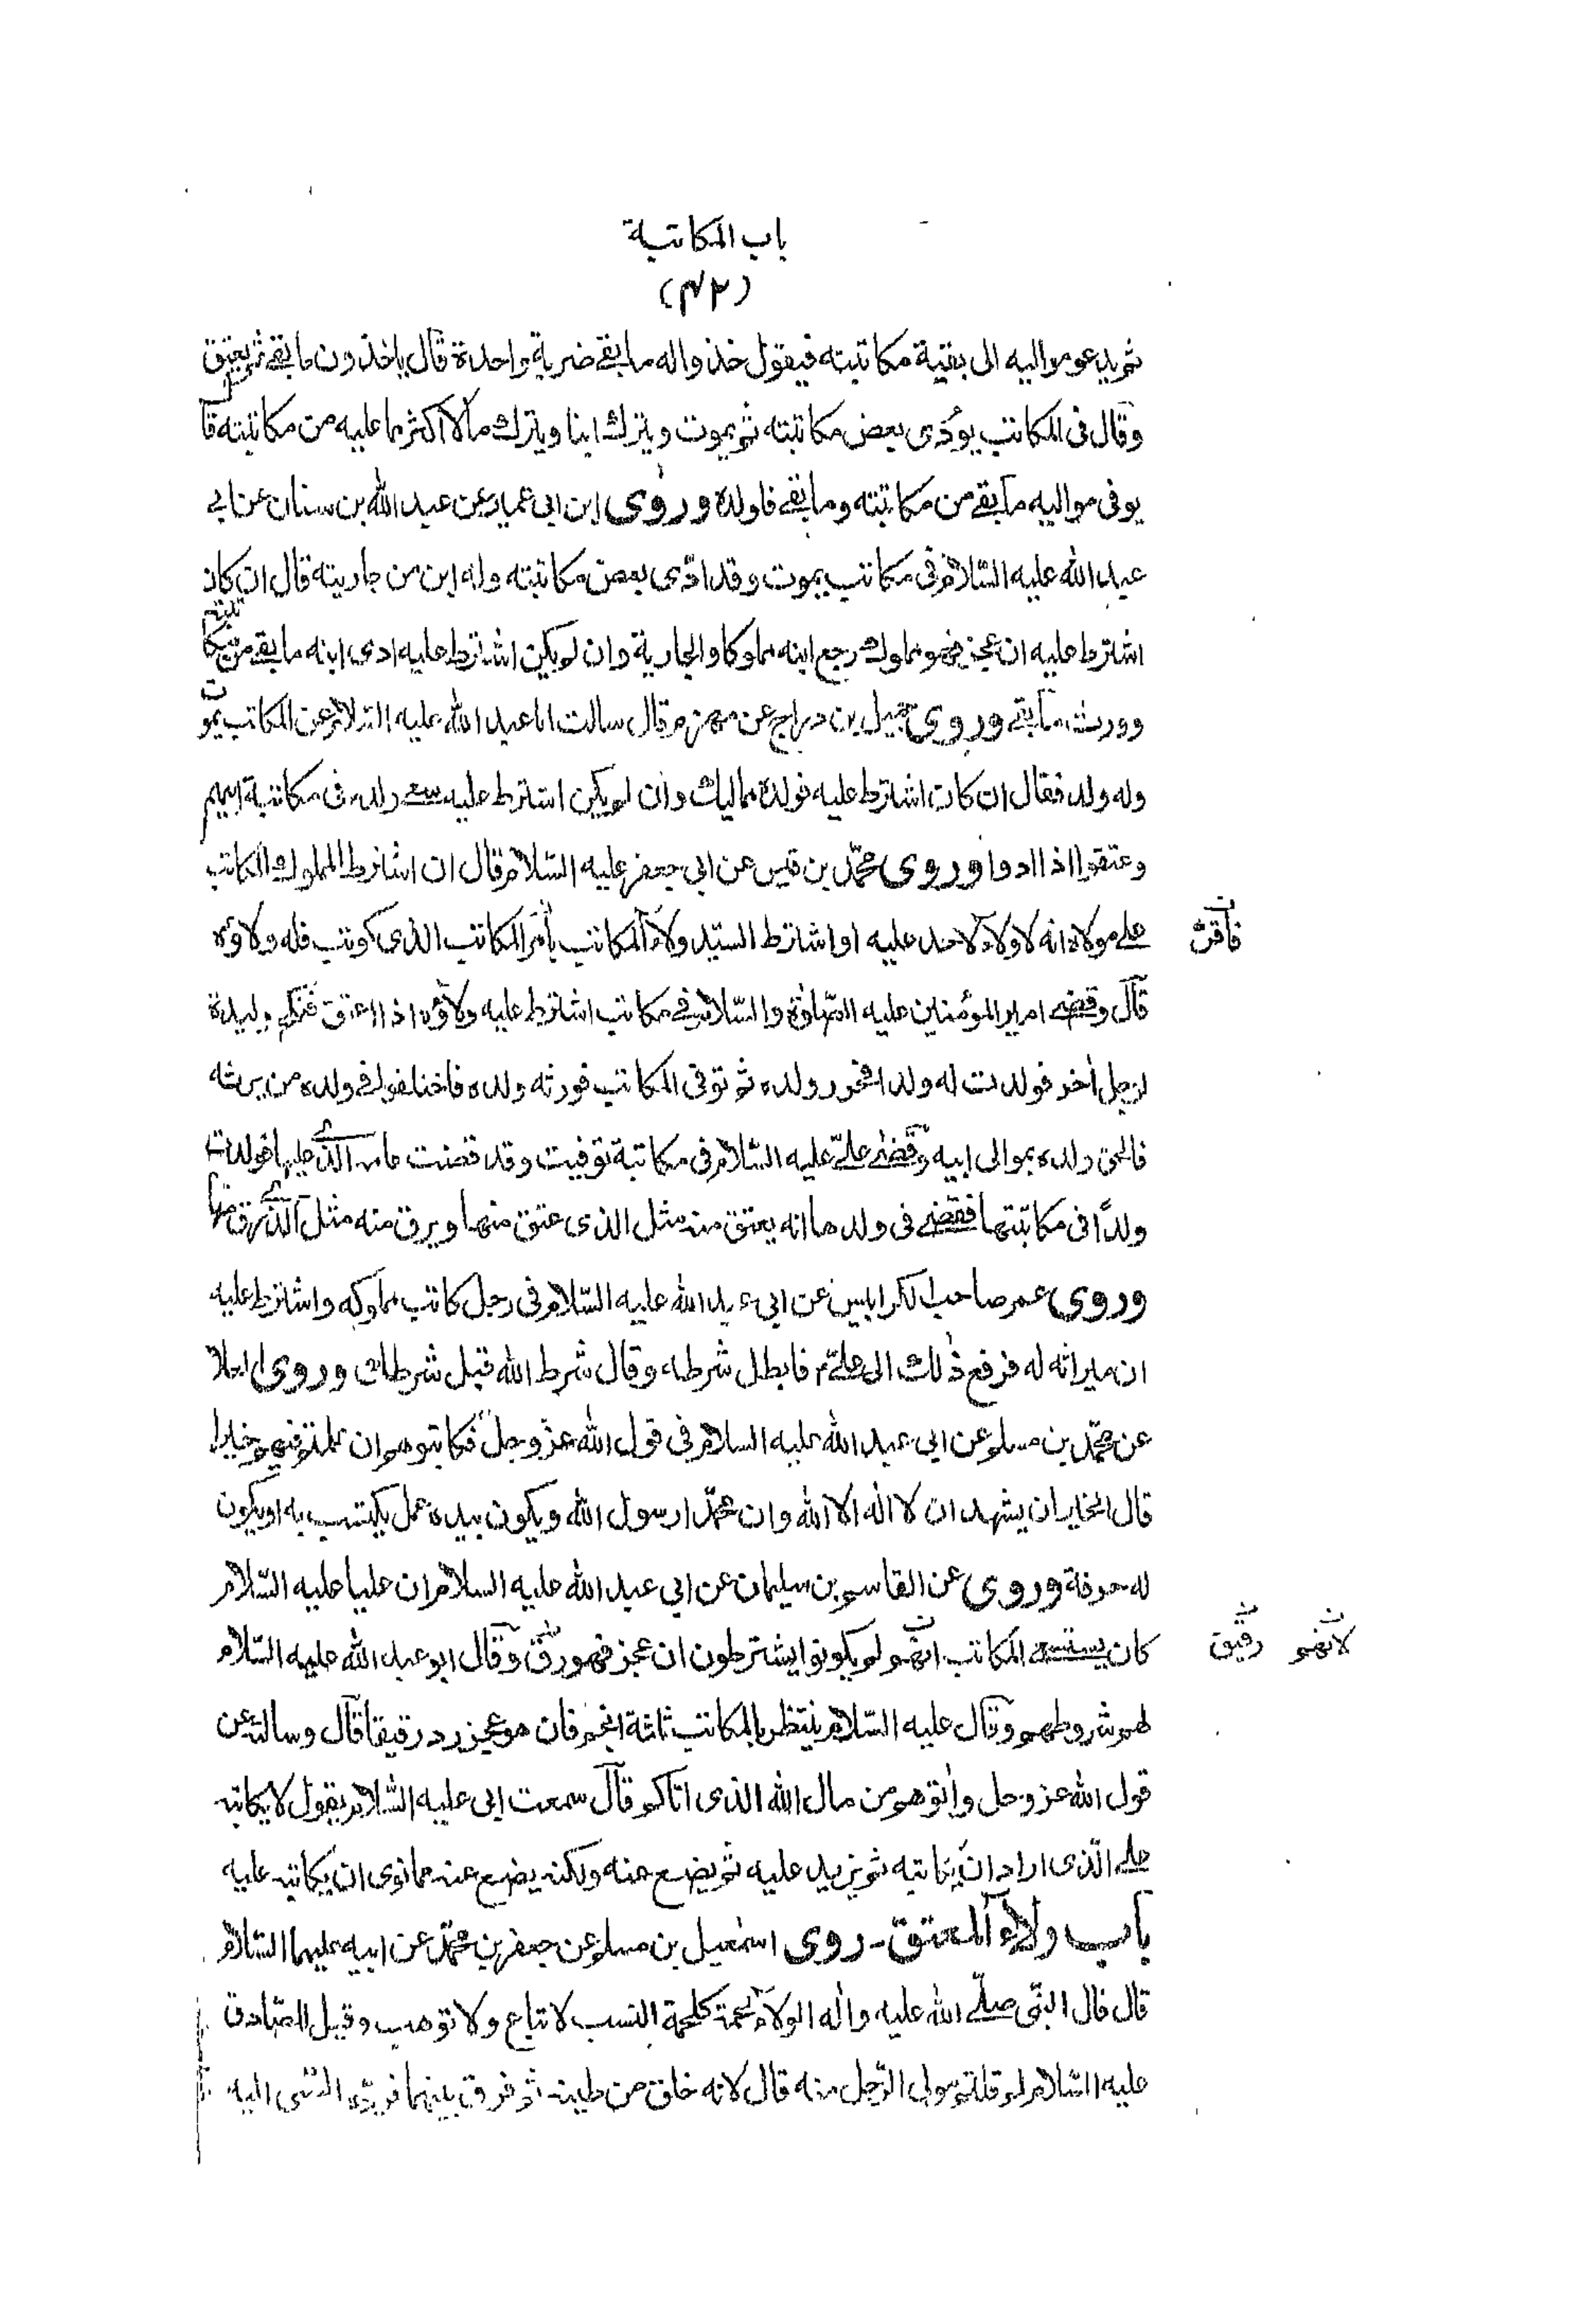 باب المكاتبة
(۴۲)
ثم يدعو مواليه الى بقية مكاتبته فيقول خذوا له ما بقى ضربة واحدة قال ياخذون ما بقى ثم يعتق
وقال فى المكاتب يؤدى بعض مكاتبته ثم يموت ويترك ابنا ويترك مالا اكثر مما عليه من مكاتبته قال
يوفى مواليه ما بقى من مكاتبته وما بقى فلولده وروى ابن ابى عمير عن عبد الله بن سنان عن ابى
عبد الله عليه السّلام فى مكاتب يموت وقد ادّى بعض مكاتبته وله ابن من جاريته قال ان كان
اشترط عليه ان عجز فهو مملوك رجع ابنه مملوكا والجارية وان لم يكن اشترط عليه ادى ابنه ما بقى من مكاتبته
وورث ما بقى وروى جميل بن دراج عن مهزم قال سالت ابا عبد الله عليه السّلام عن المكاتب يموت
وله ولد فقال ان كان اشترط عليه فولده مماليك وان لم يكن اشترط عليه سعى ولده فى مكاتبة ابيهم
وعتقوا اذا ادوا وروى محمّد بن قيس عن ابى جعفر عليه السّلام قال ان اشترط المملوك المكاتب
على مولاه انه لا ولاء لاحد عليه او اشترط السيّد ولاء المكاتب فأقرّ المكاتب الذى كوتب فله ولاؤه
فأقرّ
قال وقضى امير المؤمنين عليه الصّلوة والسّلام فى مكاتب اشترط عليه ولاؤه اذا اعتق فنكح وليدة
لرجل اخر فولدت له ولدا فحرر ولده ثم توفى المكاتب فورثه ولده فاختلفوا فى ولده من يرثه
فالحق ولده بموالى ابيه وقضى علىّ عليه السّلام فى مكاتبة توفيت وقد قضت عامة الّذى عليها فولدت
ولدًا فى مكاتبتها فقضى فى ولدها انه يعتق منه مثل الذى عتق منها ويرق منه مثل الّذى رق منها
وروى عمر صاحب الكرابيس عن ابى عبد الله عليه السّلام فى رجل كاتب مملوكه واشترط عليه
ان ميراثه له فرفع ذلك الى علىّ فابطل شرطه وقال شرط الله قبل شرطك وروى العلا
عن محمّد بن مسلم عن ابى عبد الله عليه السلام فى قول الله عزّ وجل فكاتبوهم ان علمتم فيهم خيرا
قال الخير ان يشهد ان لا اله الا الله وان محمّدا رسول الله ويكون بيده عمل يكتسب به او يكون
له حرفة وروى عن القاسم بن سليمان عن ابى عبد الله عليه السلام ان عليا عليه السّلام
كان يستسعى المكاتب انهم لم يكونوا يشترطون ان عجز فهو رق وقال ابو عبد الله عليه السّلام
لانهم رقيق
لهم شروطهم وقال عليه السّلام ينتظر بالمكاتب ثلثة انجم فان هو عجز رد رقيقا قال وسالته عن
قول الله عز وجل واتوهم من مال الله الذى اتاكم قال سمعت ابى عليه السّلام يقول لا يكاتبه
على الّذى اراد ان يكاتبه ثم يزيد عليه ثم يضع عنه ولكنه يضع عنه مما نوى ان يكاتبه عليه
باب ولاء المعتق - روى اسمعيل بن مسلم عن جعفر بن محمّد عن ابيه عليهما السّلام
قال قال النبى صلّى الله عليه واله الولاء لحمة كلحمة النسب لا تباع ولا توهب وقيل للصّادق
عليه السّلام لم قلتم مولى الرّجل منه قال لانه خلق من طينته ثم فرق بينهما فردّه السّبى اليه